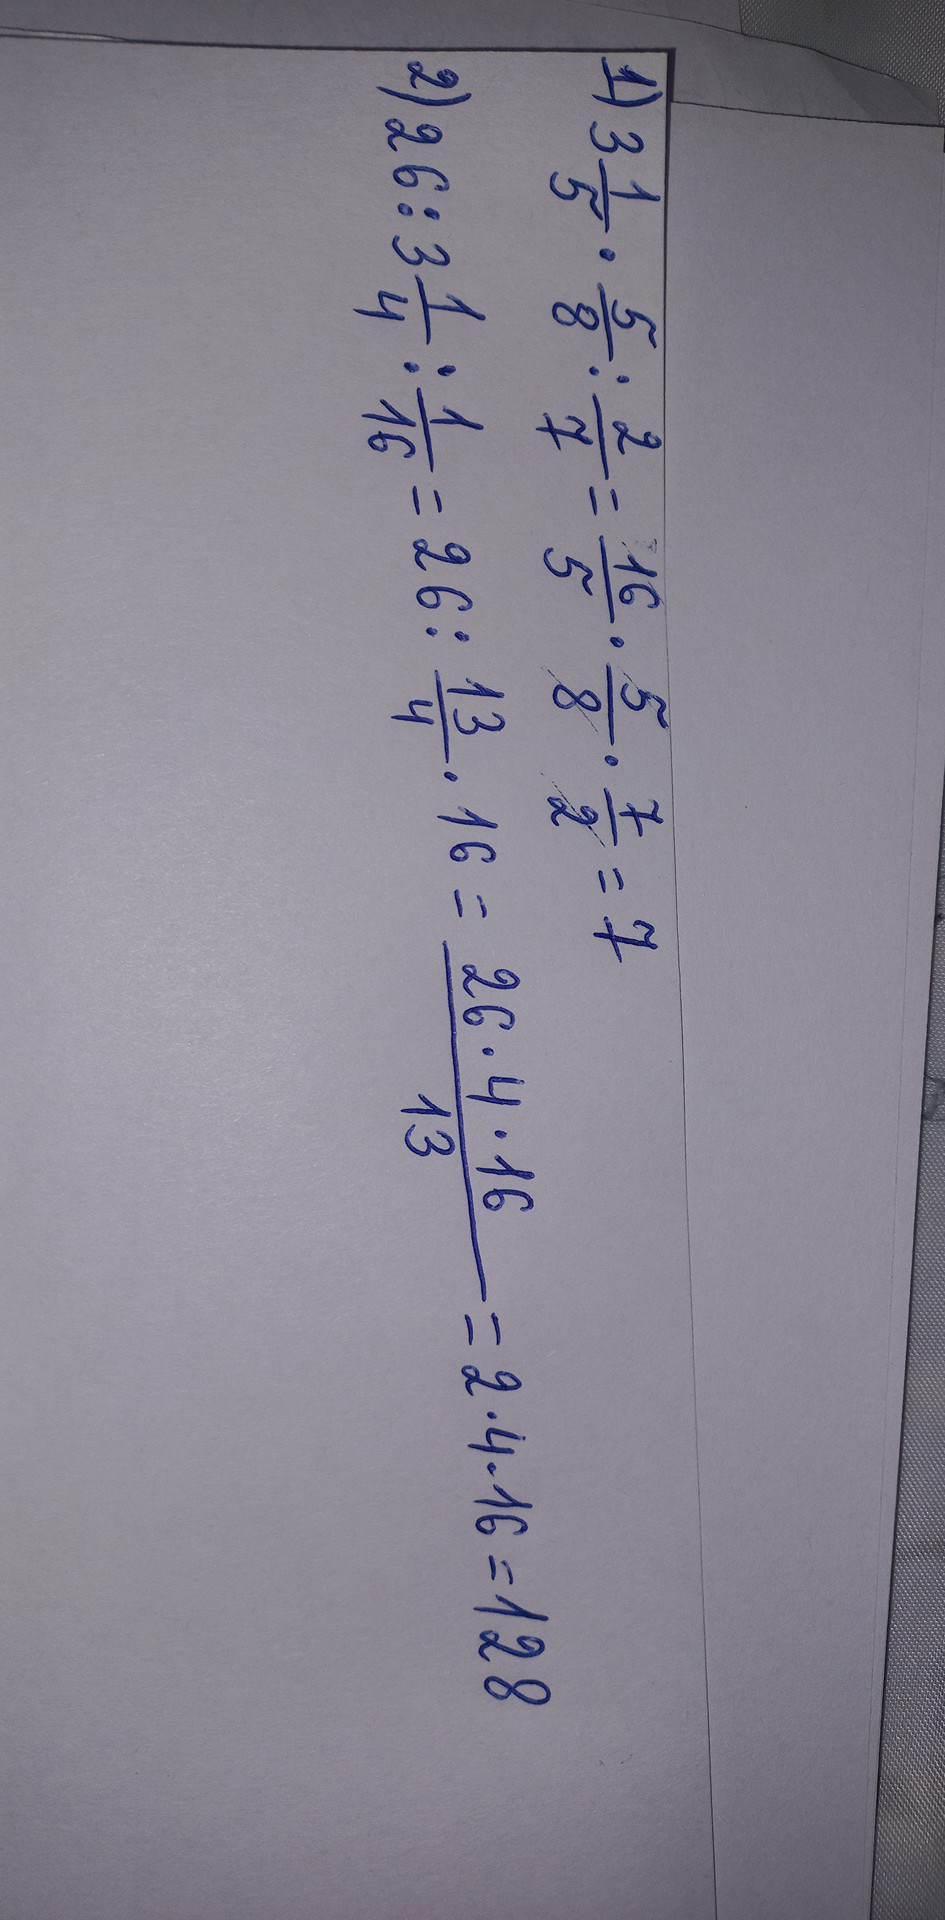 1) 3 1/5 · 5/8 : 2/7 = 16/5 · 5/8 · 7/2 = 7
2) 26 : 3 1/4 : 1/16 = 26 : 13/4 · 16 = 26 · 4 · 16/13 = 2 · 4 · 16 = 128